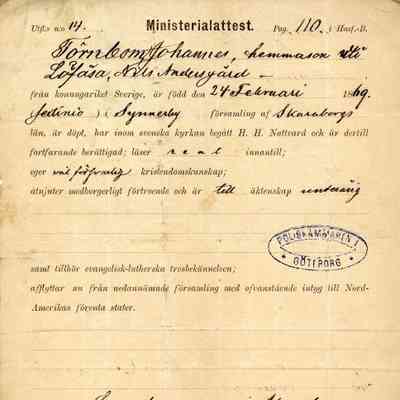 Utfl. n:o 14. Ministerialattest. Pag. 110. i Husf.-B.
Törnblom, Johannes, hemmason uti
Löfåsa, Nils Andersgård
från konungariket Sverige, är född den 24 Februari 1869.
(sextionio) i Synnerby församling af Skaraborgs
län, är döpt, har inom svenska kyrkan begått H. H. Nattvard och är dertill
fortfarande berättigad; läser rent innantill;
eger väl försvarlig kristendomskunskap;
åtnjuter medborgerligt förtroende och är till äktenskap
POLISKAMMAREN I
GÖTEBORG
samt tillhör evangelisk-lutherska trosbekännelsen;
afflyttar nu från nedannämde församling med ofvanstående intyg till Nord-
Amerikas förenta stater.